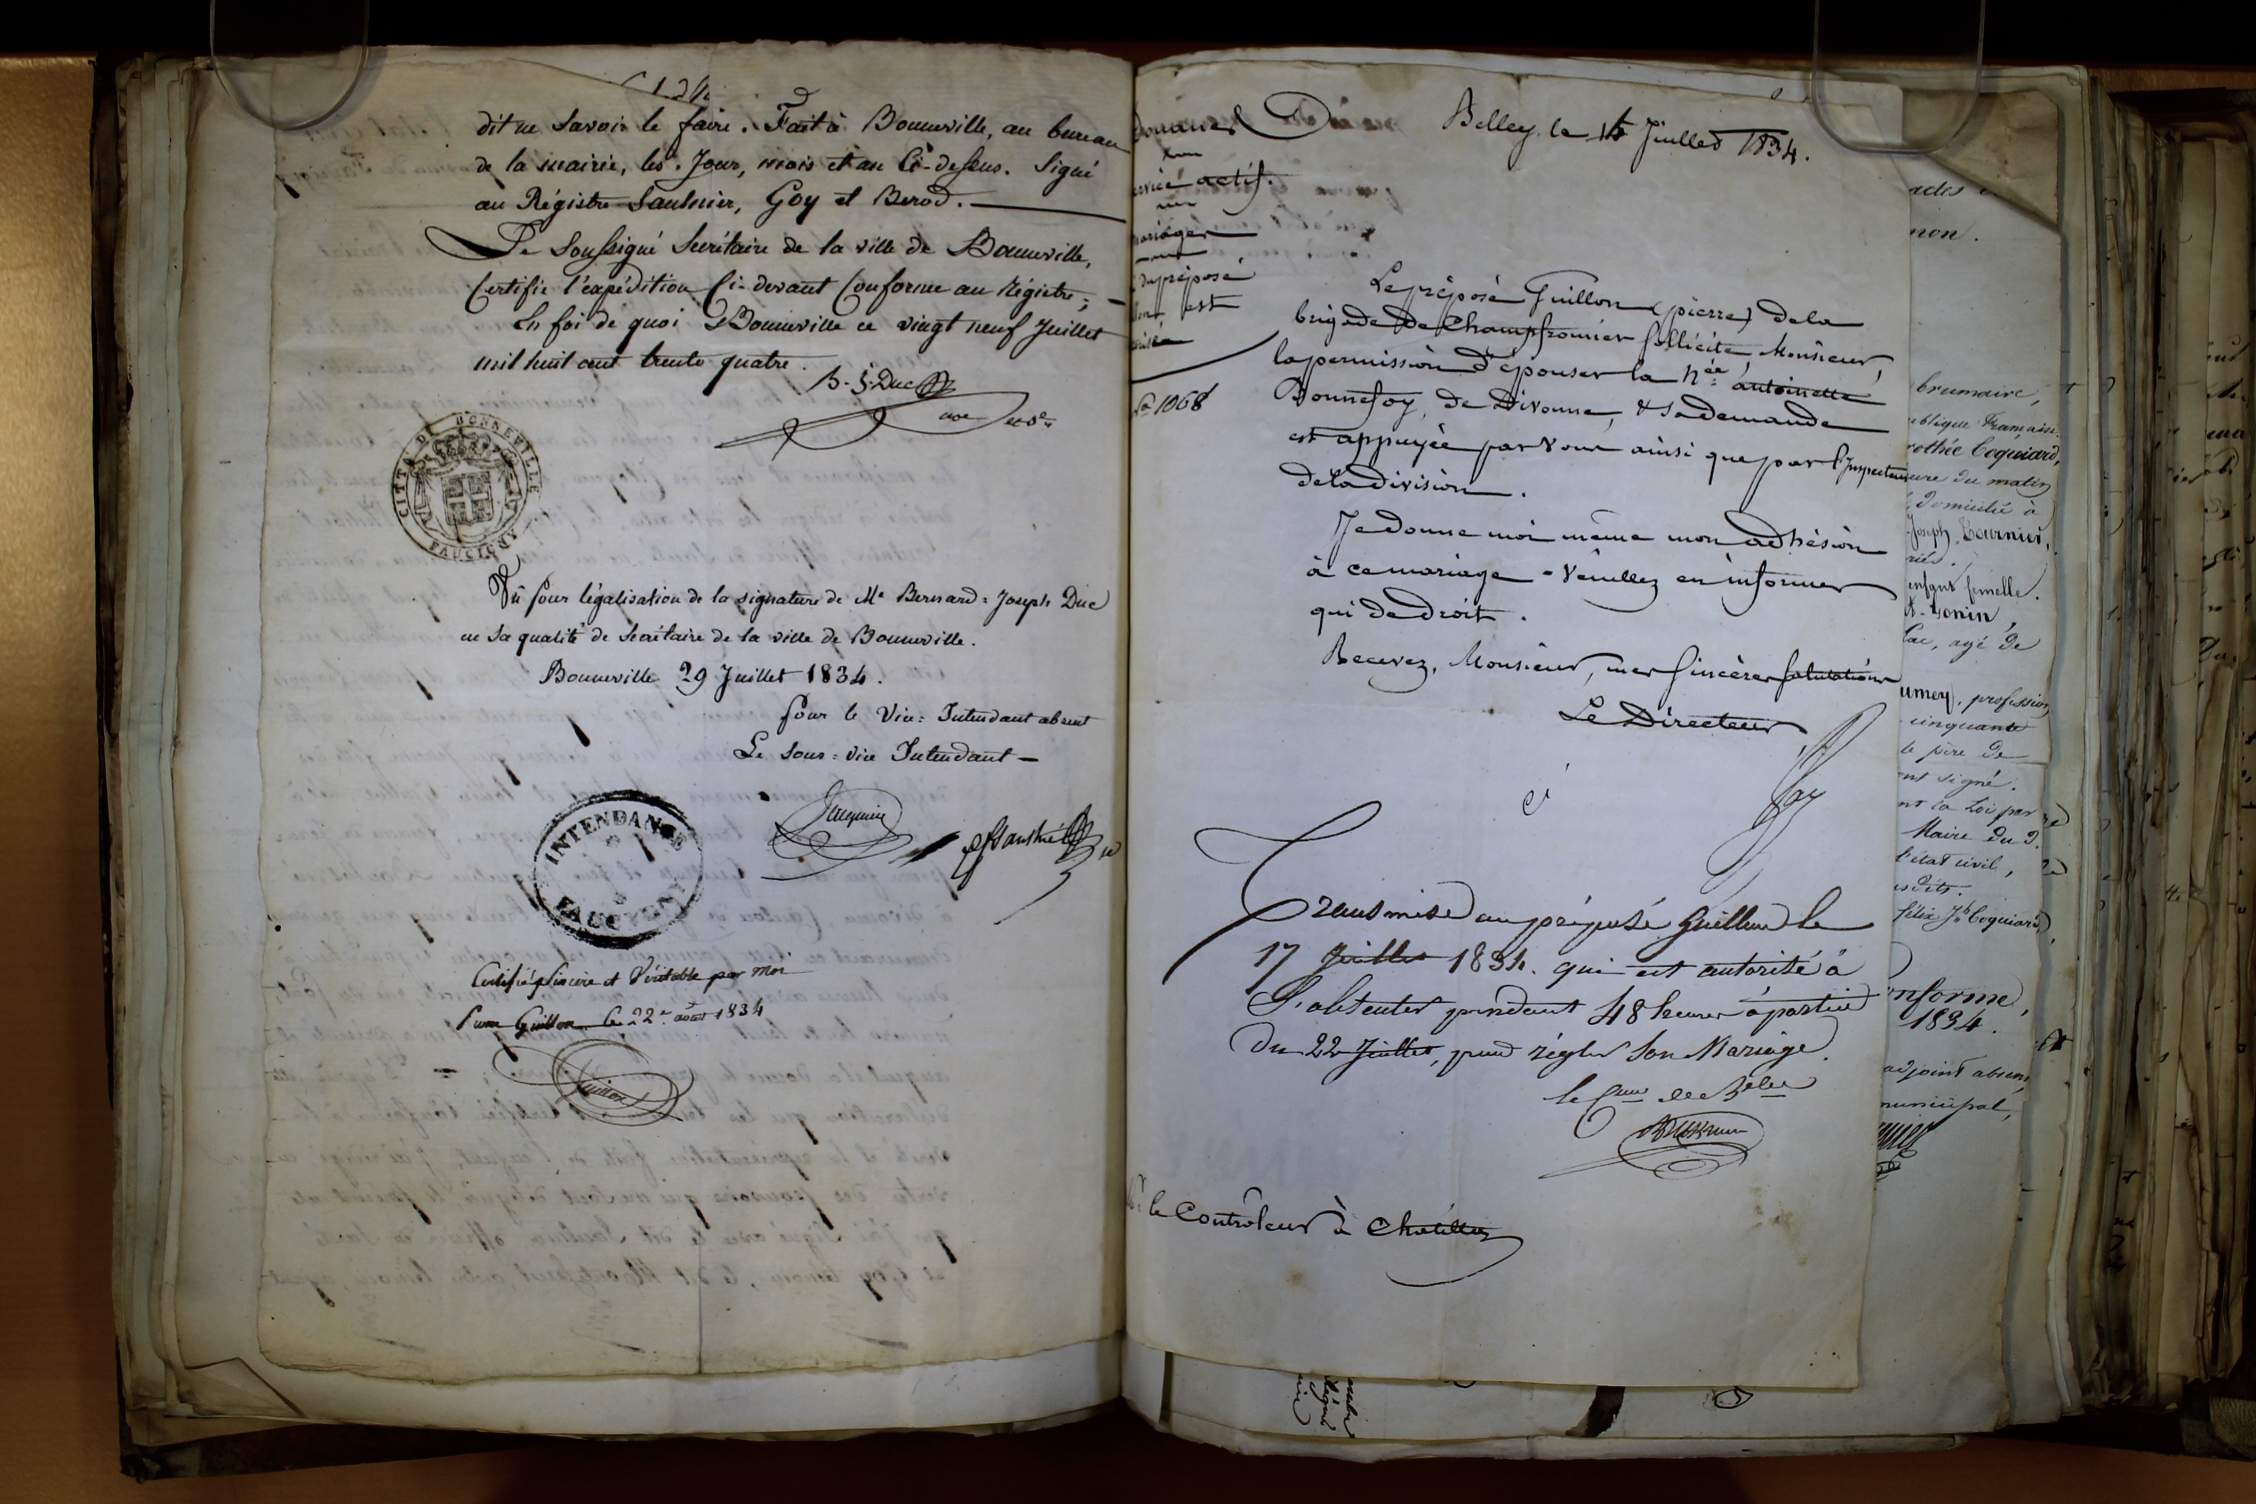 dit ne Savoir le faire. Fait à Bonneville, au bureau
de la mairie, les Jour, mois et an Ci-dessus. Signé
au Régistre Saulnier, Goy et Berod.
Le Soussigné Secrétaire de la ville de Bonneville,
Certifie l'expédition Ci-devant Conforme au Régistre;
En foi de quoi Bonneville ce vingt neuf Juillet
mil huit cent trente quatre.
B. J. Duc
CITTA DI BONNEVILLE
FAUCIGNY
Vû pour légalisation de la signature de Me Bernard=Joseph Duc
en Sa qualité de Secrétaire de la ville de Bonneville.
Bonneville 29 Juillet 1834.
pour le Vice=Intendant absent
Le Sous=vice Intendant
INTENDANCE
FAUCIGNY
Certifié Sincère et Véritable par moi
Pierre Guillon le 22 août 1834
Guillon
Douanes
Belley le Juillet 1834.
service actif.
mariages
du préposé
est
No 1068
Le préposé Guillon (pierre) de la
brigade de Champfromier sollicite, Monsieur,
la permission d'épouser la Née antoinette
Bonnefoy, de Divonne, & sa demande
est appuyée par vous ainsi que par l'Inspecteur
de la division.
Je donne moi même mon adhésion
à ce mariage - Veuillez en informer
qui de droit.
Recevez, Monsieur, mes sincères salutations
Le Directeur
Transmise au préposé Guillon le
17 Juillet 1834. qui est autorisé à
S'absenter pendant 48 heures à partir
du 22 Juillet, pour régler Son Mariage.
le Contrôleur à Chatillon
actes
brumaire,
publique Française
Dorothée Coquiard,
heure du matin
domicilié à
Joseph Tournier,
enfant femelle.
Lac, agé de
profession
cinquante
le père de
ont signé.
la Loi par
Maire du
l'état civil,
félix Jh Coquiard,
conforme,
1834.
adjoint absent,
municipal,